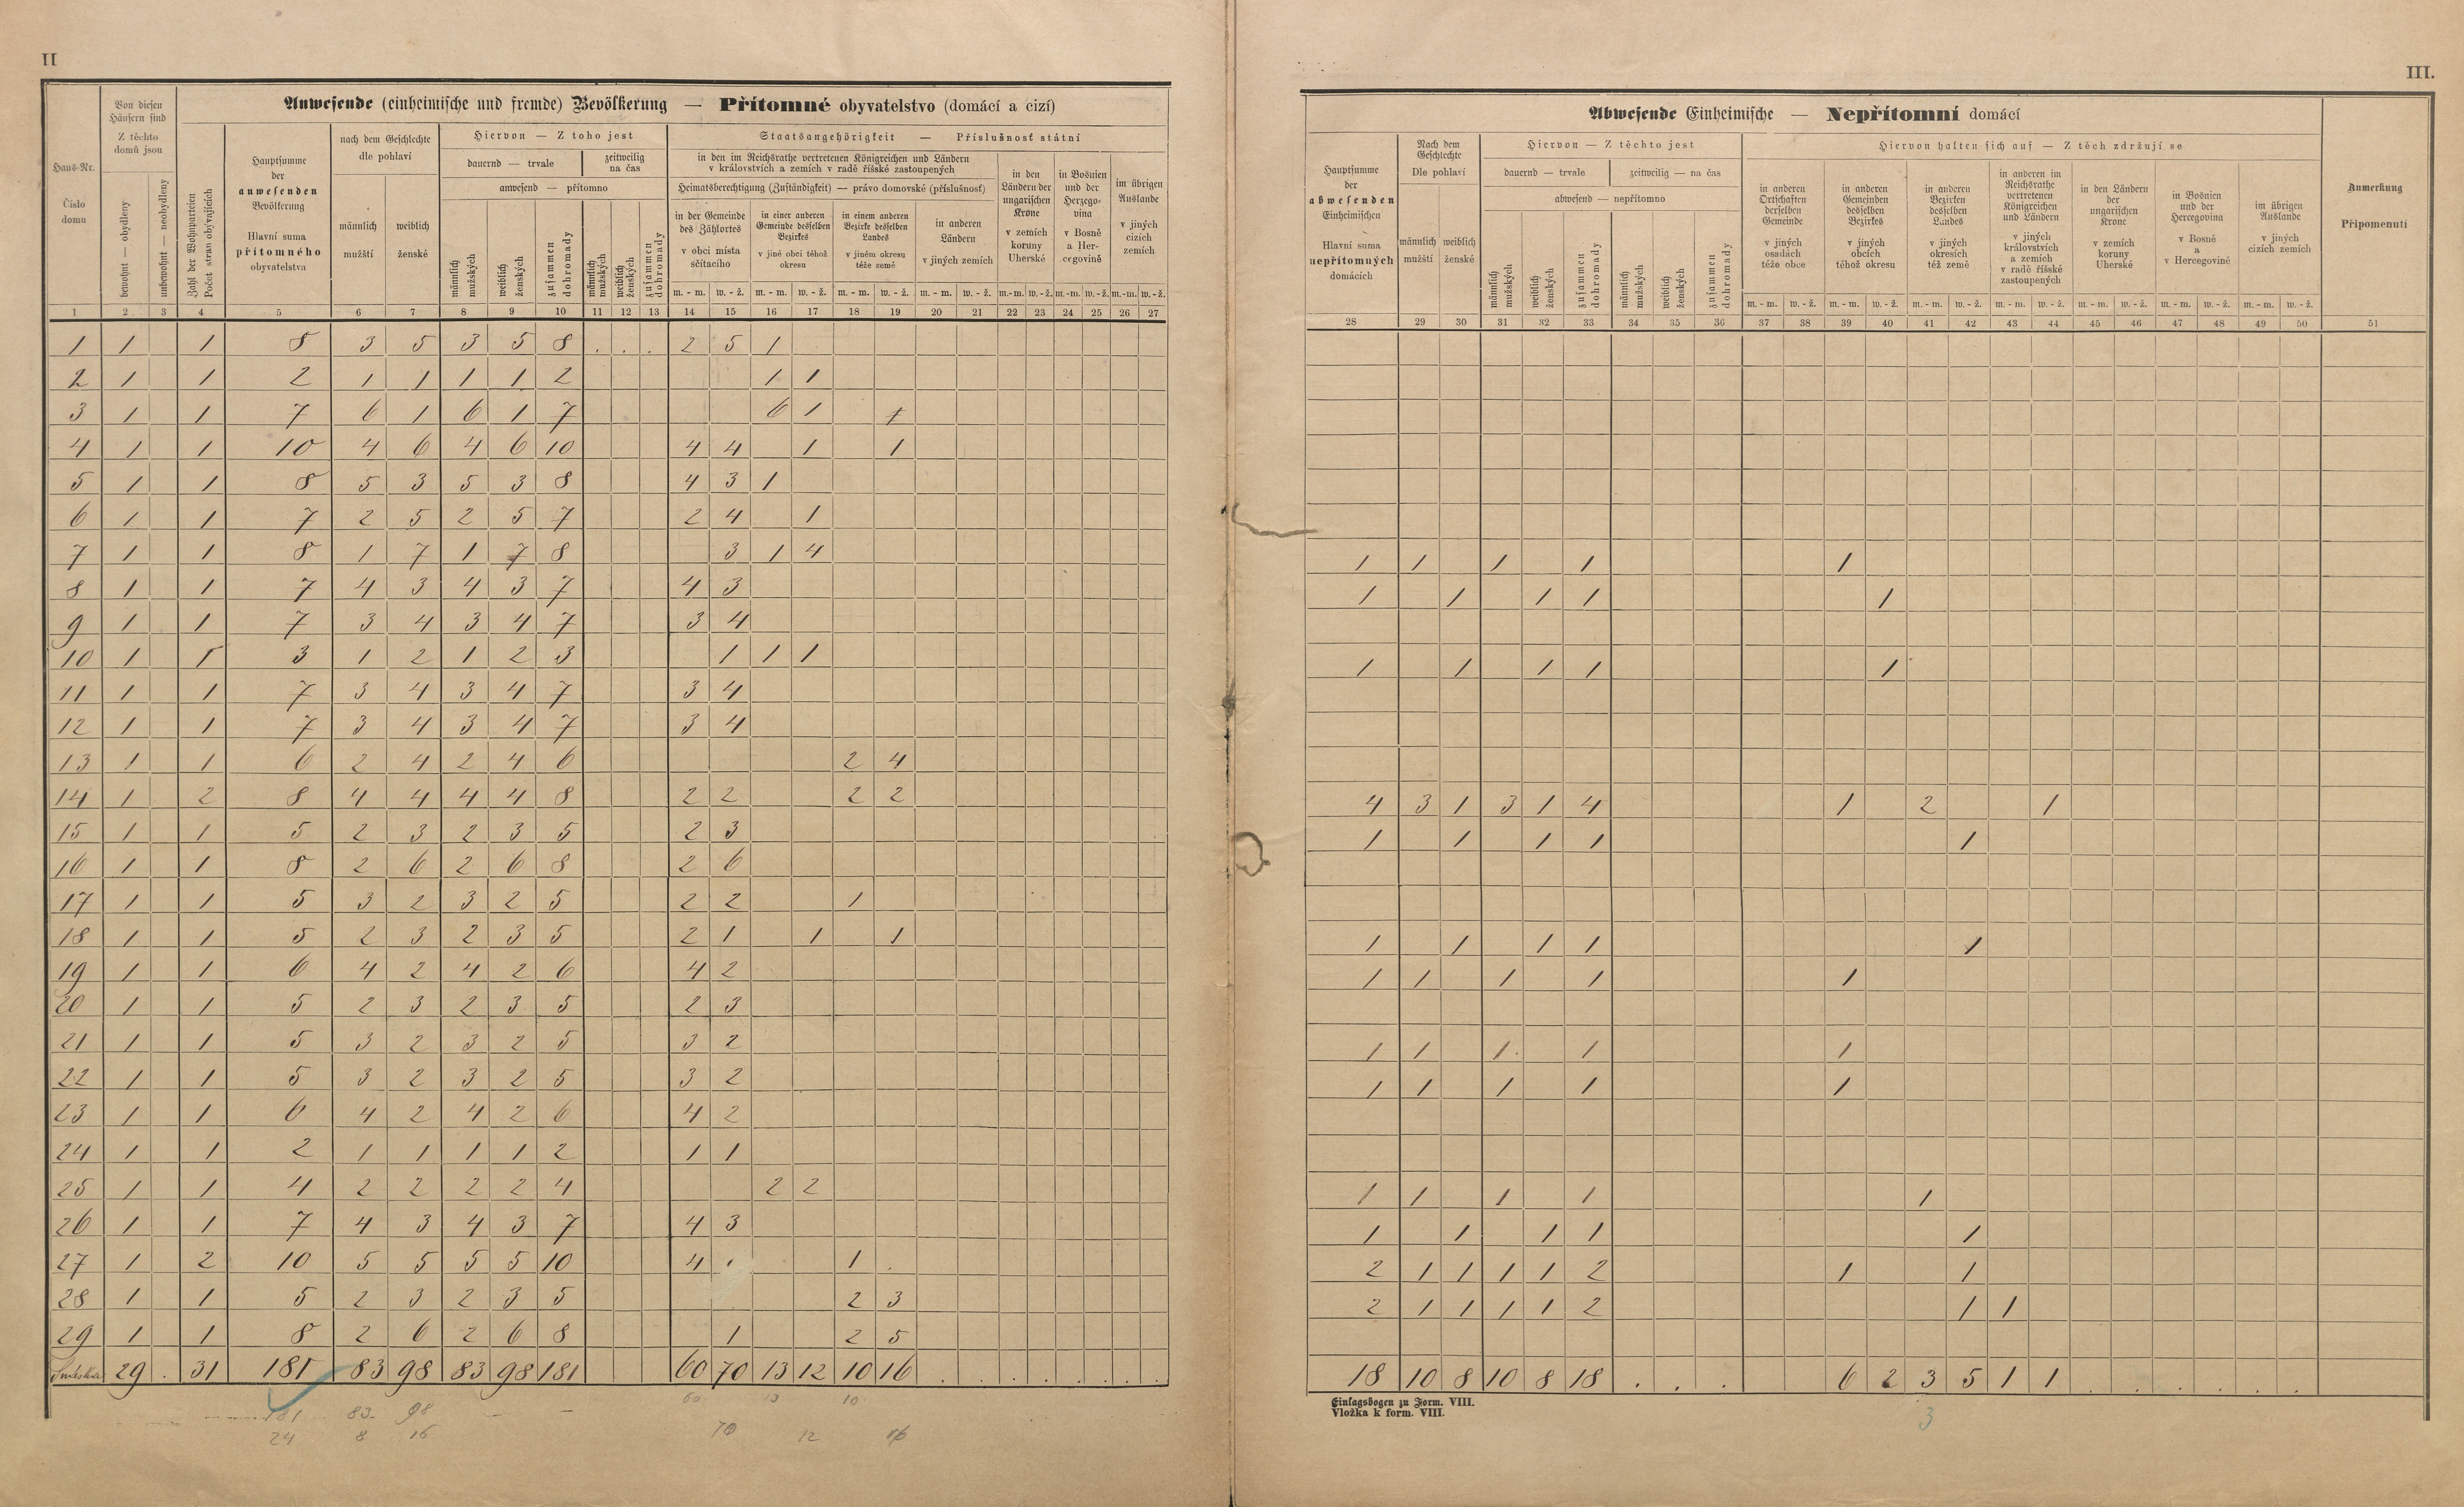 II
III.
Anwesende (einheimische und fremde) Bevölkerung — Přítomné obyvatelstvo (domácí a cizí)
Haus-Nr.
Číslo domu
Von diesen Häusern sind
Z těchto domů jsou
bewohnt — obydleny
unbewohnt — neobydleny
Zahl der Wohnparteien
Počet stran obývajících
Hauptsumme der anwesenden Bevölkerung
Hlavní suma přítomného obyvatelstva
nach dem Geschlechte
dle pohlaví
männlich mužští
weiblich ženské
Hiervon — Z toho jest
dauernd — trvale
zeitweilig na čas
anwesend — přítomno
männlich mužských
weiblich ženských
zusammen dohromady
männlich mužských
weiblich ženských
zusammen dohromady
Staatsangehörigkeit — Příslušnosť státní
in den im Reichsrathe vertretenen Königreichen und Ländern
v královstvích a zemích v radě říšské zastoupených
Heimatsberechtigung (Zuständigkeit) — právo domovské (příslušnosť)
in der Gemeinde des Zählortes
v obci místa sčítacího
in einer anderen Gemeinde desselben Bezirkes
v jiné obci téhož okresu
in einem anderen Bezirke desselben Landes
v jiném okresu téže země
in anderen Ländern
v jiných zemích
in den Ländern der ungarischen Krone
v zemích koruny Uherské
in Bosnien und der Herzegovina
v Bosně a Hercegovině
im übrigen Auslande
v jiných cizích zemích
m. - m. w. - ž. m. - m. w. - ž. m. - m. w. - ž. m. - m. w. - ž. m.-m. w.-ž. m.-m. w.-ž. m.-m. w.-ž.
1 2 3 4 5 6 7 8 9 10 11 12 13 14 15 16 17 18 19 20 21 22 23 24 25 26 27
1 1 1 8 3 5 3 5 8 . . . 2 5 1
2 1 1 2 1 1 1 1 2 1 1
3 1 1 7 6 1 6 1 7 6 1
4 1 1 10 4 6 4 6 10 4 4 1 1
5 1 1 8 5 3 5 3 8 4 3 1
6 1 1 7 2 5 2 5 7 2 4 1
7 1 1 8 1 7 1 7 8 3 1 4
8 1 1 7 4 3 4 3 7 4 3
9 1 1 7 3 4 3 4 7 3 4
10 1 1 3 1 2 1 2 3 1 1 1
11 1 1 7 3 4 3 4 7 3 4
12 1 1 7 3 4 3 4 7 3 4
13 1 1 6 2 4 2 4 6 2 4
14 1 2 8 4 4 4 4 8 2 2 2 2
15 1 1 5 2 3 2 3 5 2 3
16 1 1 8 2 6 2 6 8 2 6
17 1 1 5 3 2 3 2 5 2 2 1
18 1 1 5 2 3 2 3 5 2 1 1 1
19 1 1 6 4 2 4 2 6 4 2
20 1 1 5 2 3 2 3 5 2 3
21 1 1 5 3 2 3 2 5 3 2
22 1 1 5 3 2 3 2 5 3 2
23 1 1 6 4 2 4 2 6 4 2
24 1 1 2 1 1 1 1 2 1 1
25 1 1 4 2 2 2 2 4 2 2
26 1 1 7 4 3 4 3 7 4 3
27 1 2 10 5 5 5 5 10 4 1
28 1 1 5 2 3 2 3 5 2 3
29 1 1 8 2 6 2 6 8 1 2 5
29 . 31 181 83 98 83 98 181 60 70 13 12 10 16 . . . . . . . .
60 13 10
181 83 98
70 12 16
24 8 16
Abwesende Einheimische — Nepřítomní domácí
Hauptsumme der abwesenden Einheimischen
Hlavní suma nepřítomných domácích
Nach dem Geschlechte
Dle pohlaví
männlich mužští
weiblich ženské
Hiervon — Z těchto jest
dauernd — trvale
zeitweilig — na čas
abwesend — nepřítomno
männlich mužských
weiblich ženských
zusammen dohromady
männlich mužských
weiblich ženských
zusammen dohromady
Hiervon halten sich auf — Z těch zdržují se
in anderen Ortschaften derselben Gemeinde
v jiných osadách téže obce
in anderen Gemeinden desselben Bezirkes
v jiných obcích téhož okresu
in anderen Bezirken desselben Landes
v jiných okresích též země
in anderen im Reichsrathe vertretenen Königreichen und Ländern
v jiných královstvích a zemích v radě říšské zastoupených
in den Ländern der ungarischen Krone
v zemích koruny Uherské
in Bosnien und der Hercegovina
v Bosně a v Hercegovině
im übrigen Auslande
v jiných cizích zemích
Anmerkung
Připomenutí
m. - m. w. - ž. m. - m. w. - ž. m. - m. w. - ž. m. - m. w. - ž. m. - m. w. - ž. m. - m. w. - ž. m. - m. w. - ž.
28 29 30 31 32 33 34 35 36 37 38 39 40 41 42 43 44 45 46 47 48 49 50 51
1 1 1 1 1
1 1 1 1 1
1 1 1 1 1
4 3 1 3 1 4 1 2 1
1 1 1 1 1
1 1 1 1 1
1 1 1 1 1
1 1 1 1 1
1 1 1 1 1
1 1 1 1 1
1 1 1 1 1
2 1 1 1 1 2 1 1
2 1 1 1 1 2 1 1
18 10 8 10 8 18 . . . 6 2 3 5 1 1 . . . . . .
Einlagsbogen zu Form. VIII.
Vložka k form. VIII.
3